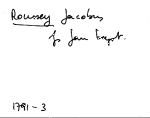 Roussey Jacobus
fs Jan Baptt.
1791 - 3